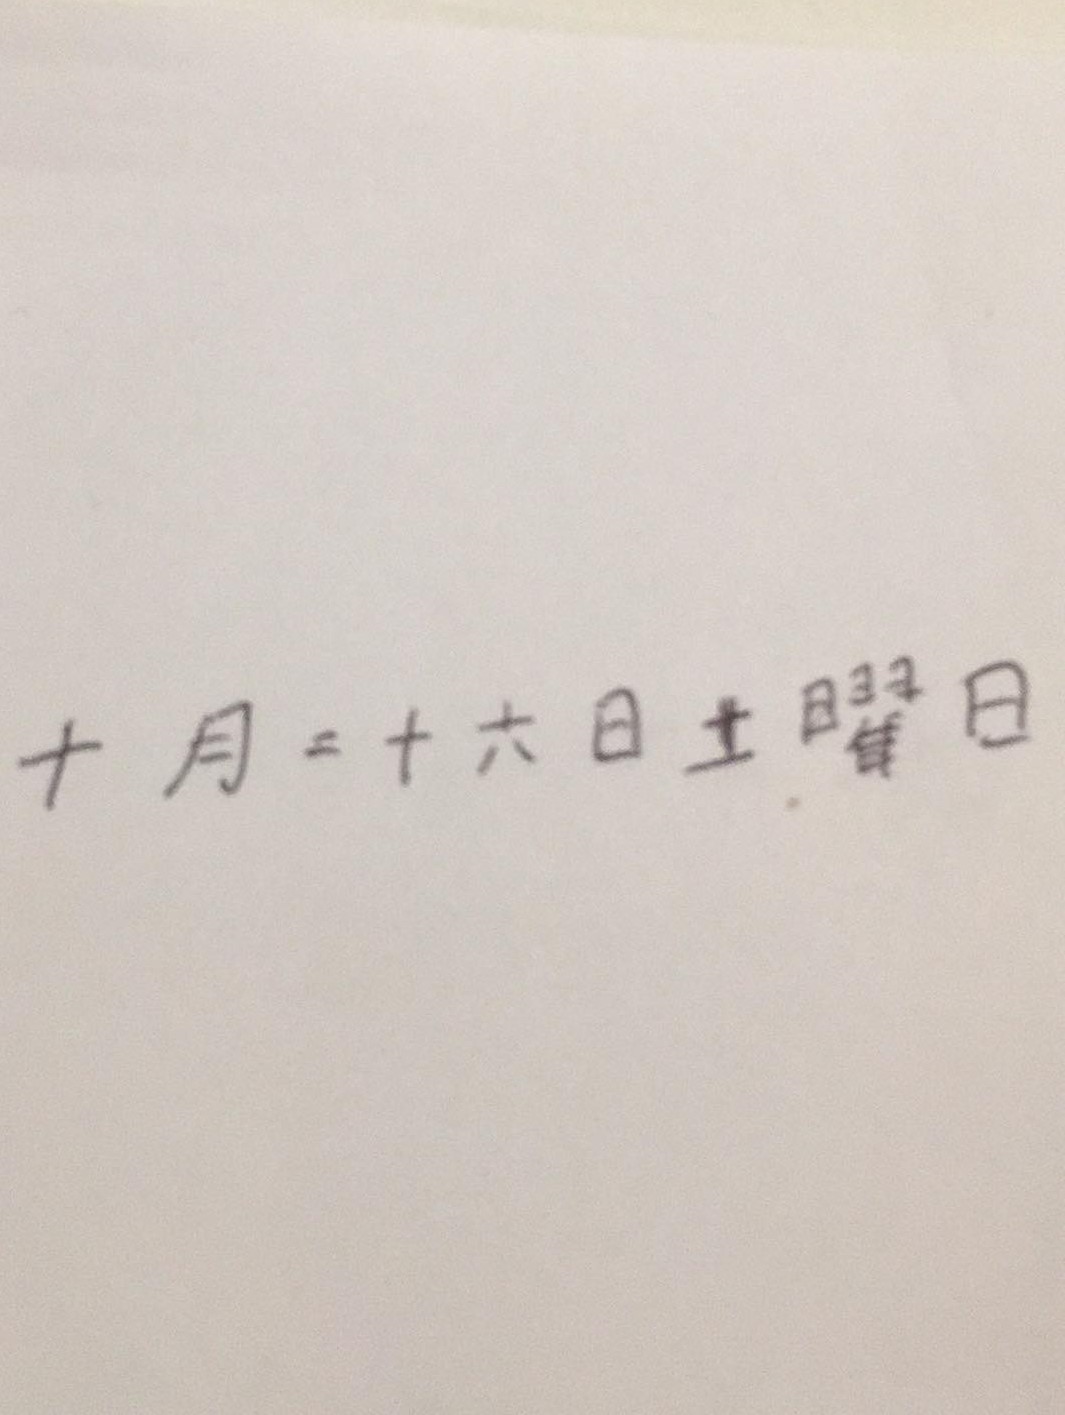 十月二十六日土曜日